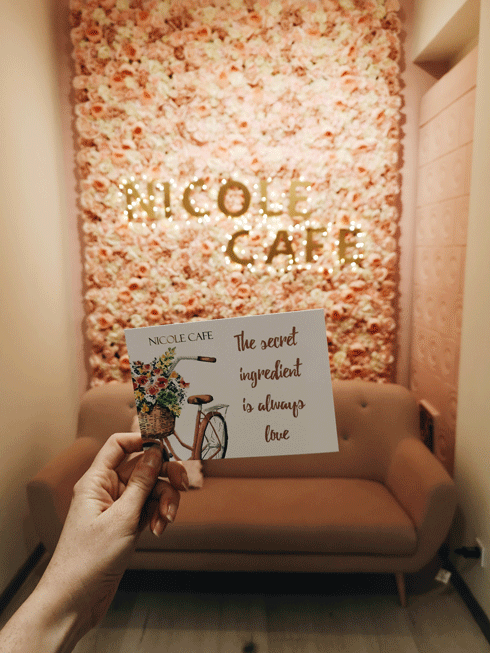 NICOLE
CAFE
NICOLE CAFE
The secret
ingredient
is always
love